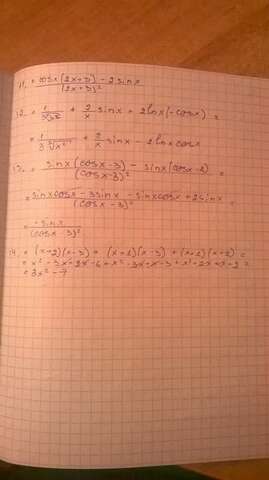 11. = cosx(2x+3) - 2sinx / (2x+3)²
12. = 1 / 3∛x² + 2/x sinx + 2lnx(-cosx) =
= 1 / 3∛x² + 2/x sinx - 2lnx cosx
13. = sinx(cosx-3) - sinx(cosx-2) / (cosx-3)² =
= sinxcosx - 3sinx - sinxcosx + 2sinx / (cosx-3)² =
= -sinx / (cosx-3)²
14. = (x+2)(x-3) + (x+1)(x-3) + (x+1)(x+2) =
= x² - 3x + 2x - 6 + x² - 3x + x - 3 + x² + 2x + x + 2 =
= 3x² - 7